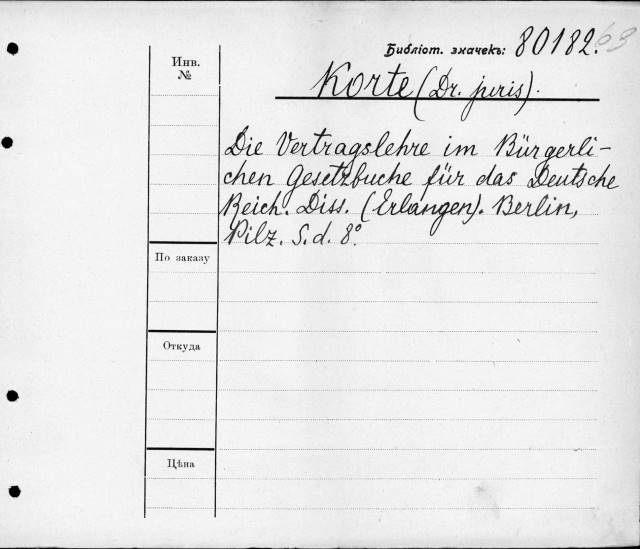 Библіот. значекъ: 80182.63
Korte (Dr. juris).
Инв.
№
Die Vertragslehre im Bürgerli-
chen Gesetzbuche für das Deutsche
Reich. Diss. (Erlangen). Berlin,
Pilz. S. d. 8°.
По заказу
Откуда
Цѣна